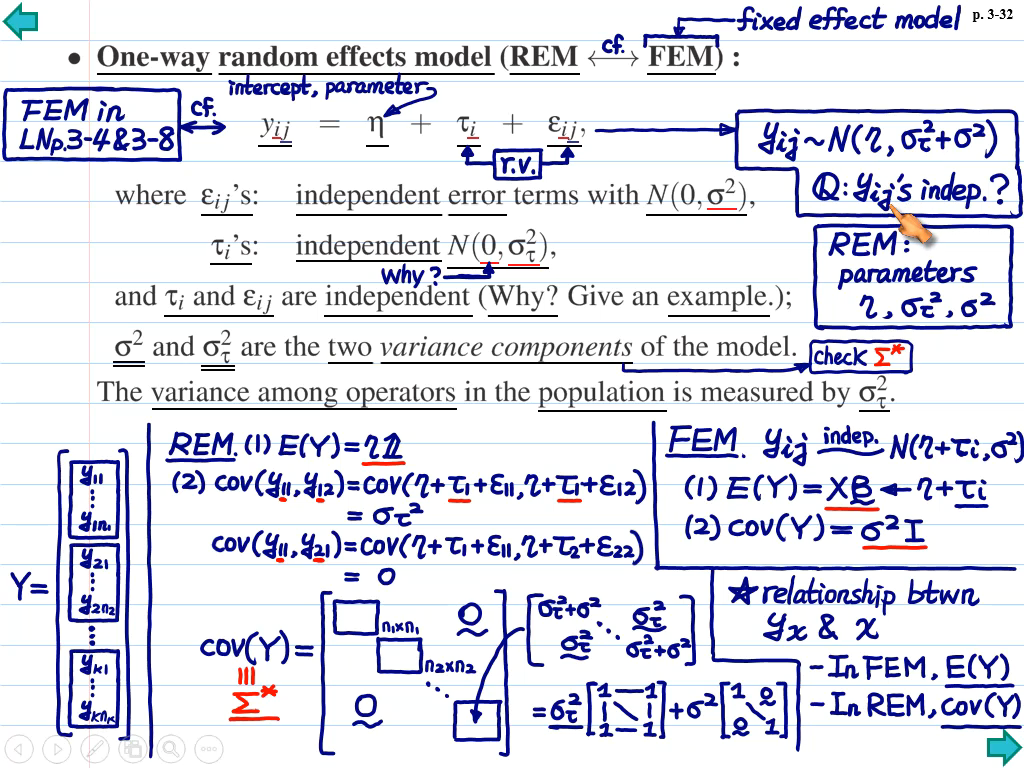 p. 3-32
fixed effect model
• One-way random effects model (REM ⟷ FEM) :
cf.
intercept, parameter
FEM in
LNp.3-4&3-8
cf.
y_{ij} = η + τ_i + ε_{ij},
r.v.
y_{ij} ~ N(η, σ_τ²+σ²)
Q: y_{ij}'s indep.?
where ε_{ij}'s: independent error terms with N(0, σ²),
τ_i's: independent N(0, σ_τ²),
why?
REM:
parameters
η, σ_τ², σ²
and τ_i and ε_{ij} are independent (Why? Give an example.);
σ² and σ_τ² are the two variance components of the model.
check Σ*
The variance among operators in the population is measured by σ_τ².
Y=
y_{11}
⋮
y_{1n_1}
y_{21}
⋮
y_{2n_2}
⋮
y_{k1}
⋮
y_{kn_k}
REM. (1) E(Y)=η𝟙
(2) cov(y_{11}, y_{12})=cov(η+τ_1+ε_{11}, η+τ_1+ε_{12})
= σ_τ²
cov(y_{11}, y_{21})=cov(η+τ_1+ε_{11}, η+τ_2+ε_{22})
= 0
cov(Y)=
|||
Σ*
n_1×n_1
0
n_2×n_2
⋱
0
σ_τ²+σ² σ_τ²
⋱
σ_τ² σ_τ²+σ²
=σ_τ² [1 — 1
| \ |
1 — 1] + σ² [1 0
\
0 1]
FEM. y_{ij} indep. ~ N(η+τ_i, σ²)
(1) E(Y)=Xβ ← η+τ_i
(2) cov(Y)=σ²I
☆ relationship btwn
y_x & x
- In FEM, E(Y)
- In REM, cov(Y)